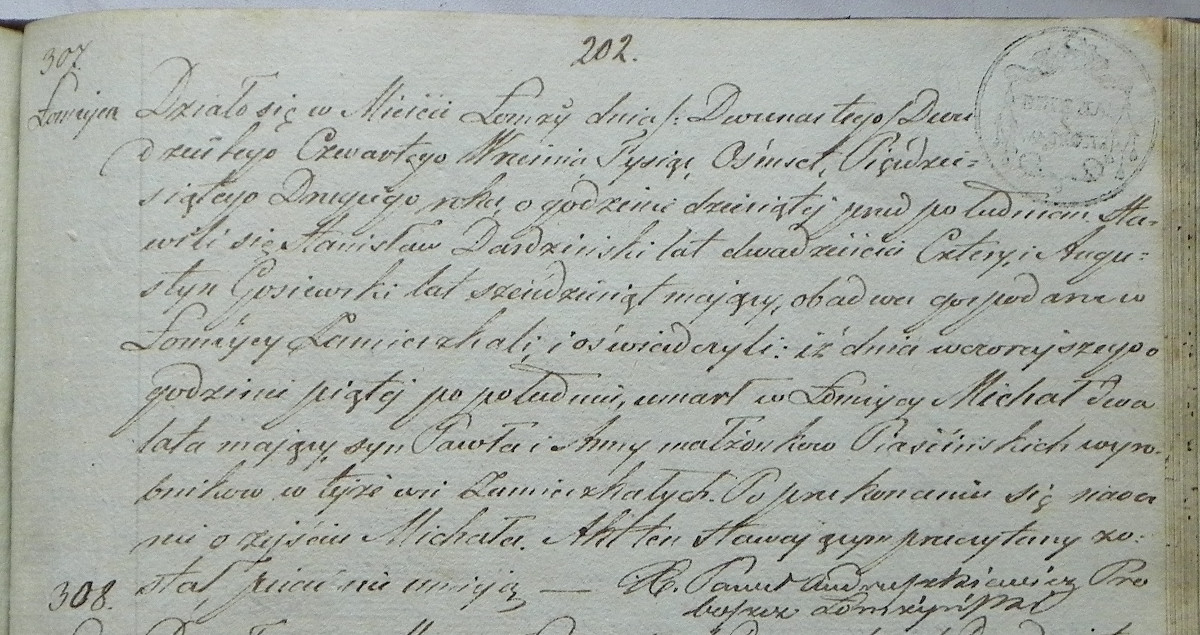 202.
307.
Łomżyca
Działo się w Mieście Łomży dnia /: Dwunastego/ Dwu
dziestego Czwartego Września Tysiąc Ośmset Pięćdzie=
siątego Drugiego roku o godzinie dziesiątej przed południem Sta-
wili się Stanisław Dardziński lat dwadzieścia Cztery, i Augu=
styn Gosiewski lat sześćdziesiąt mający, obadwa gospodarze w
Łomżycy Zamieszkali, i oświadczyli: iż dnia wczorajszego o
godzinie piątej po południu, umarł w Łomżycy Michał Dwa
lata mający, syn Pawła i Anny małżonków Piaścińskich wyro-
bników w tejże wsi Zamieszkałych. Po przekonaniu się naocz
nie o zejściu Michała. Akt ten stawającym przeczytany zo-
stał, pisać nie umieją — X. Paweł Andruszkiewicz Pro
boszcz Łomżyński
308.